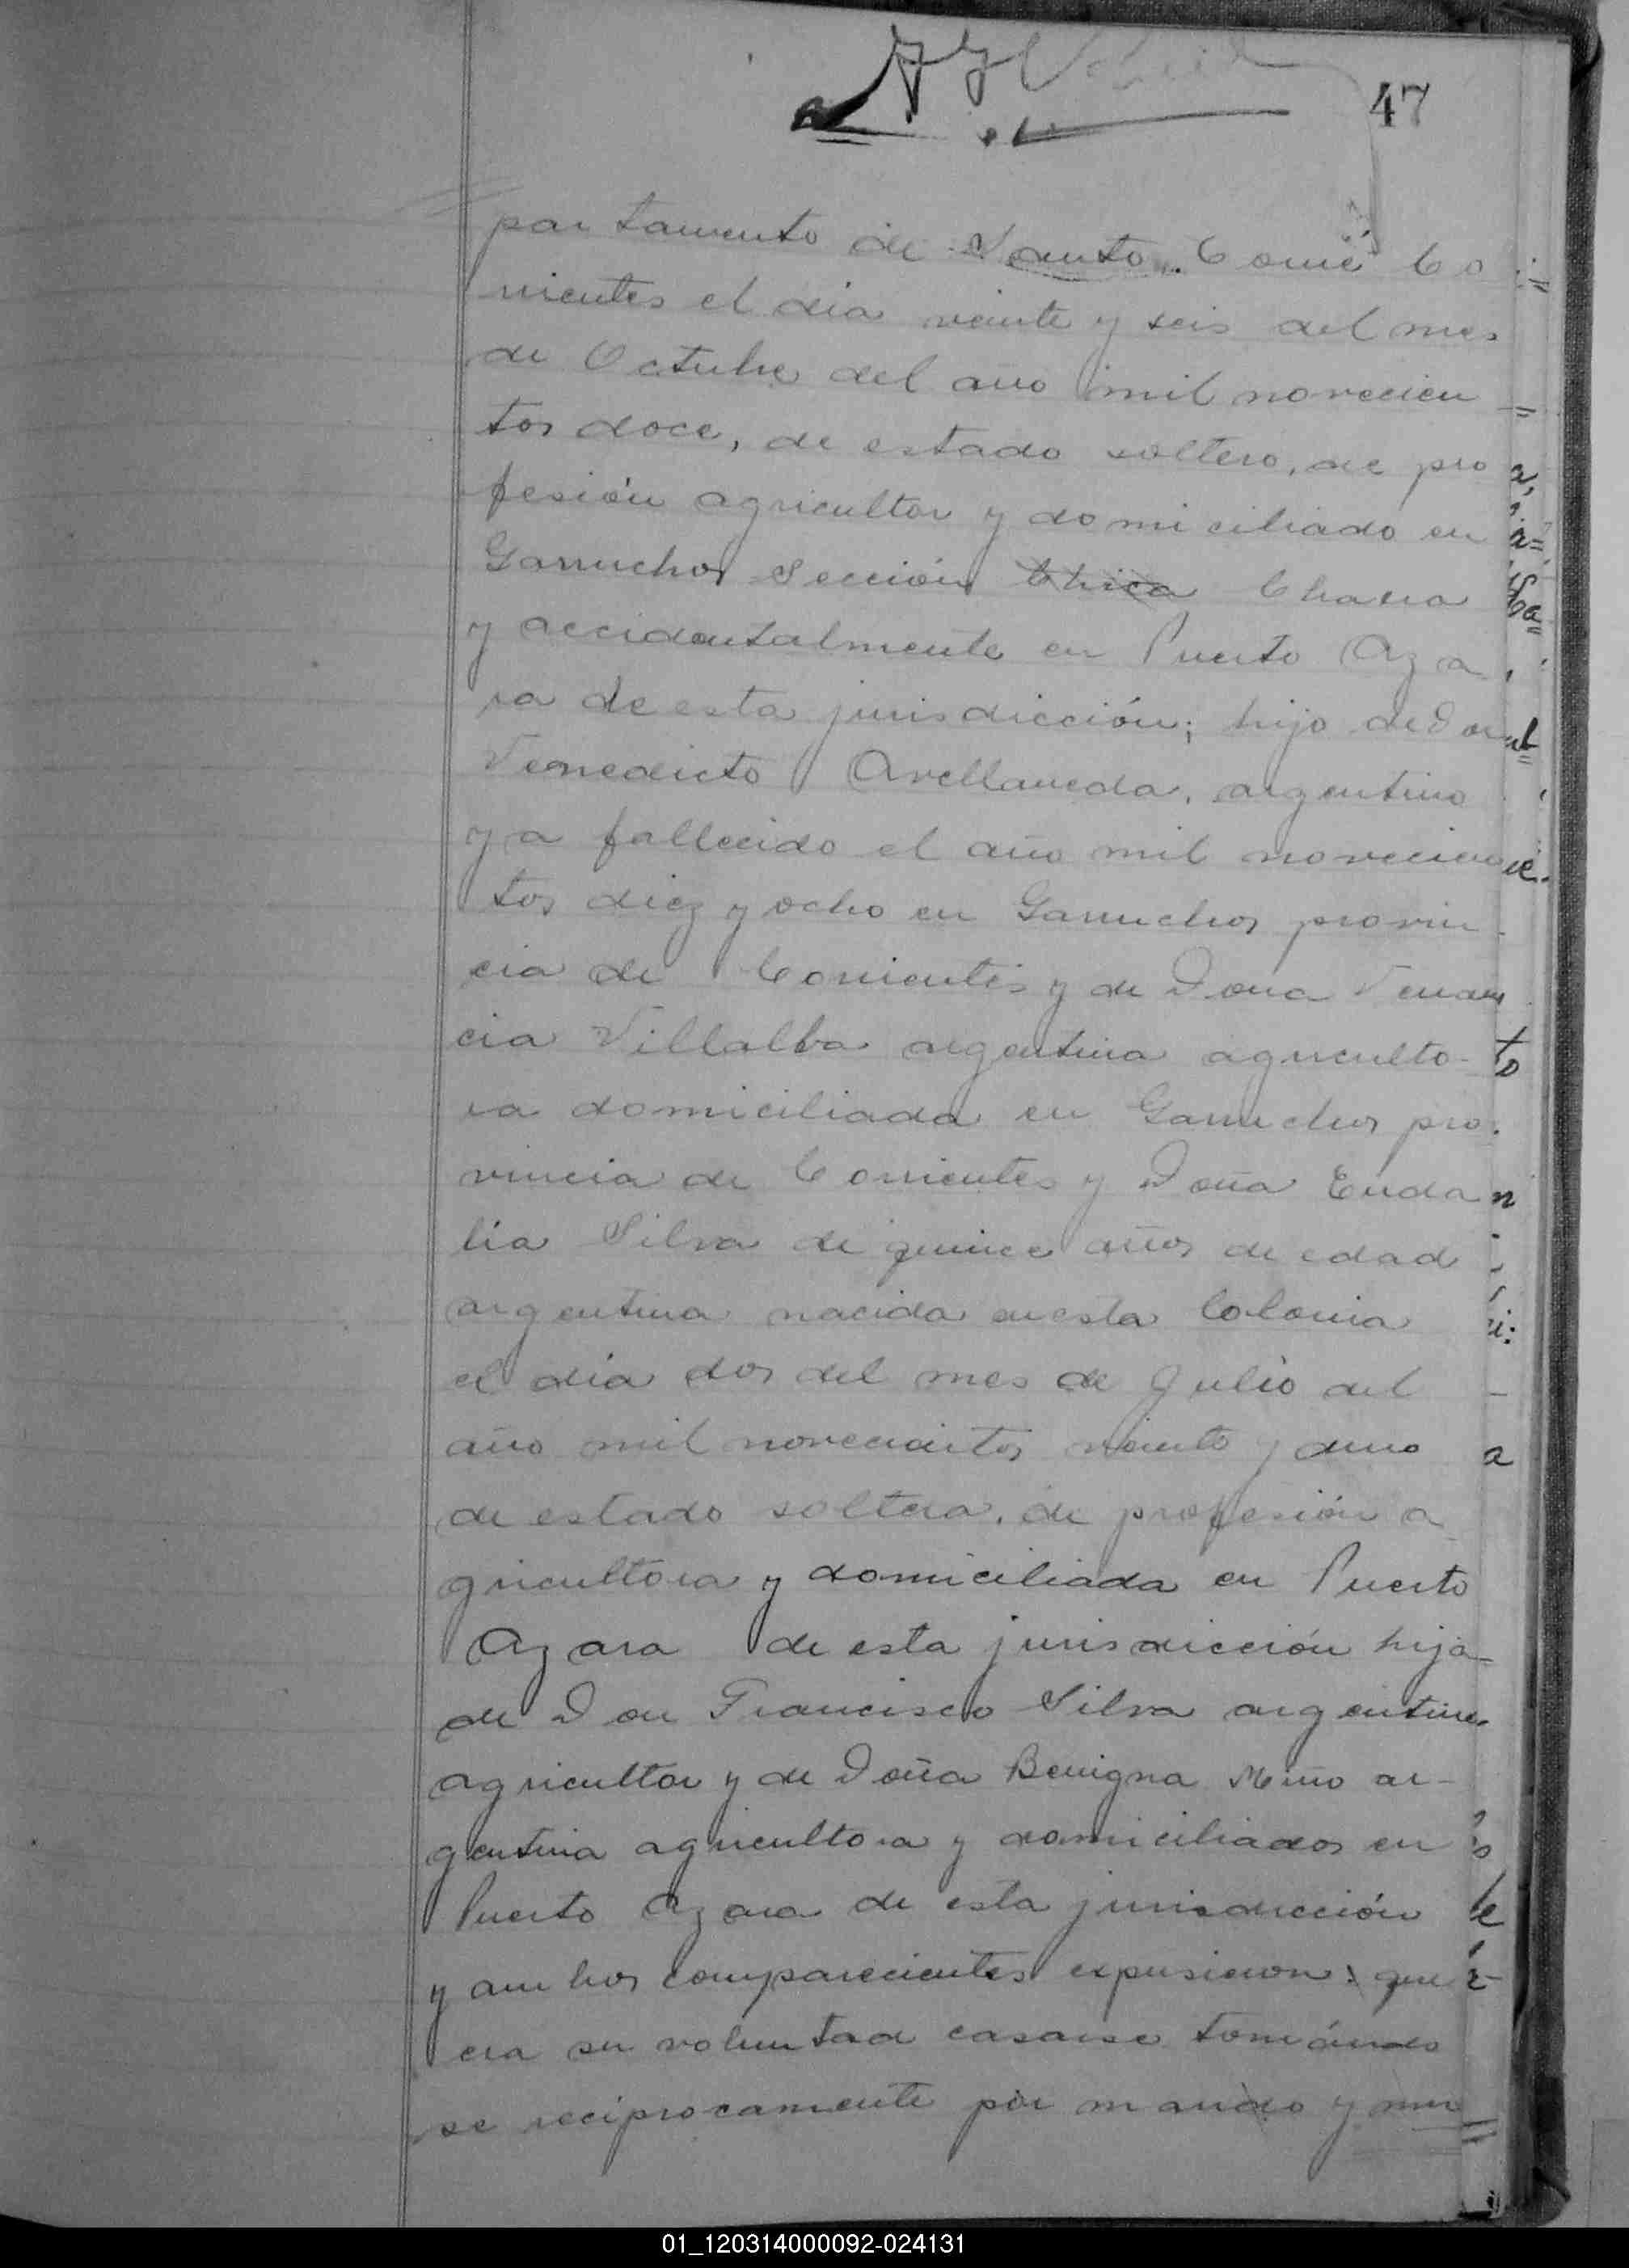 47
partamento de Santo Tomé Co
rrientes el día veinte y seis del mes
de Octubre del año mil novecien
tos doce, de estado soltero, de pro
fesión agricultor y domiciliado en
Garruchos Sección Chica Chacra
y accidentalmente en Puerto Aza
ra de esta jurisdicción; hijo de Don
Venedicto Avellaneda, argentino
ya fallecido el año mil novecien
tos diez y ocho en Garruchos provin
cia de Corrientes y de Dona Venan
cia Villalba argentina agriculto-
ra domiciliada en Garruchos pro
vincia de Corrientes y Doña Euda
lia Silva de quince años de edad
argentina nacida en esta Colonia
el día dos del mes de Julio del
año mil novecientos veinte y uno
de estado soltera, de profesión a
gricultora y domiciliada en Puerto
Azara de esta jurisdicción hija
de Don Francisco Silva argentino
agricultor y de Doña Benigna Miño ar-
gentina agricultora y domiciliados en
Puerto Azara de esta jurisdicción
y ambos comparecientes expusieron: que
era su voluntad casarse tomándo
se reciprocamente por marido y mu
01_120314000092-024131